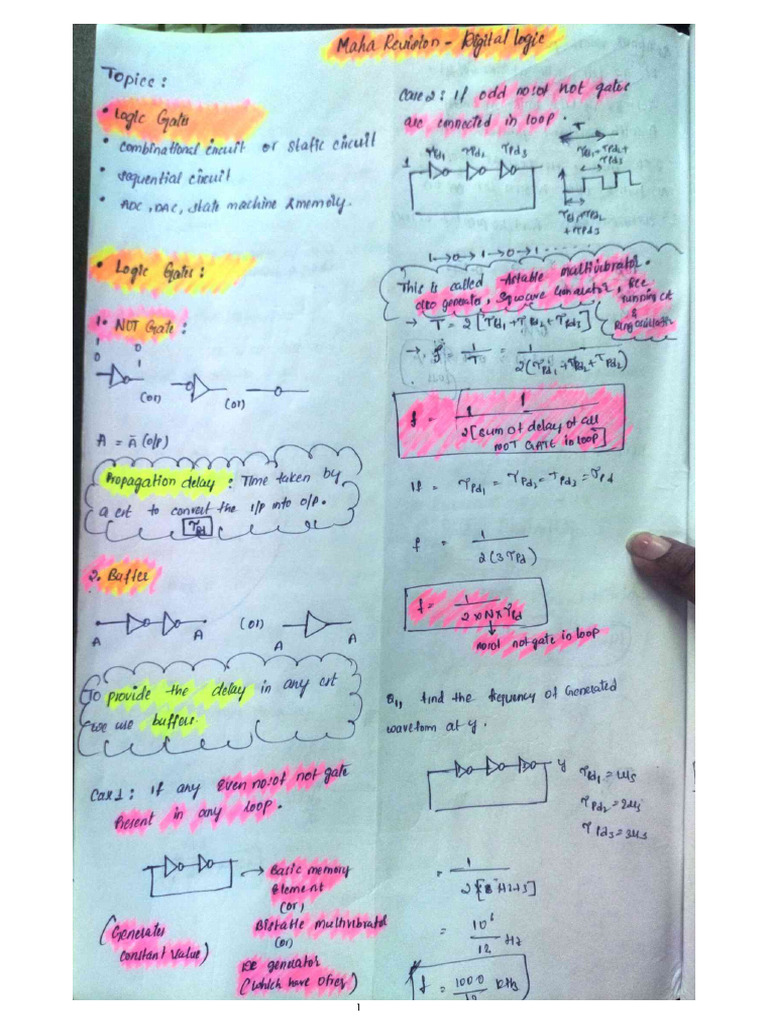 Maha Revision - Digital logic
Topics:
• Logic Gates
• combinational circuit or static circuit
• sequential circuit
• ADC, DAC, state machine & memory.
• Logic Gates:
1. NOT Gate:
1 0
0 1
(or) (or)
A = Ā (O/P)
Propagation delay: Time taken by
a ckt to convert the i/p into o/p.
τpd
2. Buffer
A A (or) A A
To provide the delay in any ckt
we use buffers.
Case 1: If any even no: of not gate
Present in any loop.
→ Basic memory
Element
(or)
Bistable multivibrator
(or)
DC generator
(which have 0freq)
(Generates
constant value)
Case 2: if odd no: of not gates
are connected in loop.
T
τpd1 τpd2 τpd3
τpd1+τpd2+
τpd3
1
τpd1+τpd2
+τpd3
1→0→1→0→1 ......
This is called Astable multivibrator.
clk generator, square Generator, free
running ckt
&
Ring oscillator
→ T = 2[τpd1+τpd2+τpd3]
→ f = 1/T = 1/2(τpd1+τpd2+τpd3)
f = 1/2[sum of delay of all
NOT GATE in loop]
If = τpd1 = τpd2 = τpd2 = τpd
f = 1/2(3τpd)
f = 1/2×N×τpd
no: of not gate in loop
Q1, find the frequency of Generated
waveform at y.
y
τpd1 = 1μs
τpd2 = 2μs
τpd3 = 3μs
= 10⁶/12 Hz
f = 1000/12 kHz
1